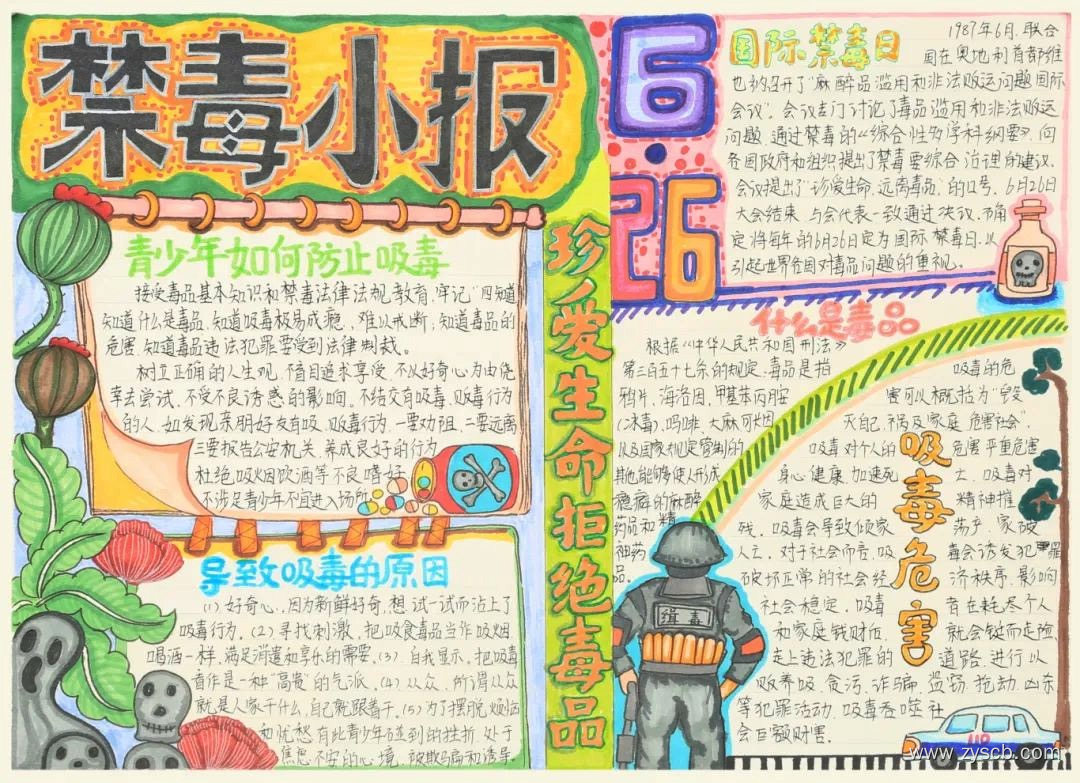 禁毒小报
青少年如何防止吸毒
接受毒品基本知识和禁毒法律法规教育,牢记"四知道
知道什么是毒品,知道吸毒极易成瘾,难以戒断;知道毒品的
危害,知道毒品违法犯罪要受到法律制裁。
树立正确的人生观,不盲目追求享受,不以好奇心为由侥
幸去尝试,不受不良诱惑的影响。不结交有吸毒、贩毒行为
的人,如发现亲朋好友有吸、贩毒行为,一要劝阻,二要远离
三要报告公安机关,养成良好的行为
杜绝吸烟饮酒等不良嗜好
不涉足青少年不宜进入场所
导致吸毒的原因
(1)好奇心,因为新鲜好奇,想试一试而沾上了
吸毒行为。(2)寻找刺激,把吸食毒品当作吸烟、
喝酒一样,满足消遣和享乐的需要。(3)自我显示。把吸毒
看作是一种"高贵"的气派。(4)从众,所谓从众
就是人家干什么,自己就跟着干。(5)为了摆脱烦恼
和忧愁,有些青少年碰到的挫折,处于
焦虑不安的心境,被欺骗和诱导。
珍爱生命拒绝毒品
6·26
国际禁毒日
1987年6月,联合
国在奥地利首都维
也纳召开了"麻醉品滥用和非法贩运问题国际
会议"。会议专门讨论了毒品滥用和非法贩运
问题,通过禁毒的《综合性多学科纲要》,向
各国政府和组织提出了禁毒要综合治理的建议。
会议提出了"珍爱生命,远离毒品"的口号。6月26日
大会结束,与会代表一致通过决议,确
定将每年的6月26日定为国际禁毒日,以
引起世界各国对毒品问题的重视。
什么是毒品
根据《中华人民共和国刑法》
第三百五十七条的规定,毒品是指
鸦片、海洛因、甲基苯丙胺
(冰毒)、吗啡、大麻、可卡因
以及国家规定管制的
其他能够使人形成
瘾癖的麻醉
药品和精
神药
品。
吸毒危害
吸毒的危
害可以概括为"毁
灭自己,祸及家庭,危害社会"。
吸毒对个人的危害严重危害
身心健康,加速死亡,吸毒对
家庭造成巨大的精神摧
残。吸毒会导致倾家荡产、家破
人亡。对于社会而言,吸毒会诱发犯罪
破坏正常的社会经济秩序,影响
社会稳定。吸毒者在耗尽个人
和家庭钱财后,就会铤而走险,
走上违法犯罪的道路,进行以
贩养吸、贪污、诈骗、盗窃、抢劫、凶杀
等犯罪活动。吸毒吞噬社
会巨额财富。
缉毒
110
www.zyscb.com